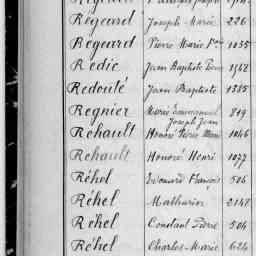 Régeard Joseph-Marie 226
Regeard Pierre Marie 1035
Redic Jean Baptiste
Redouté Jean Baptiste 1385
Regnier Marie Emmanuel 819
Joseph Jean
Rehault Honoré Marie 1046
Rehault Honoré Henri 1077
Réhel Edouard François 504
Réhel Mathurin 2147
Réhel Constant Pierre 504
Réhel Charles-Marie 624